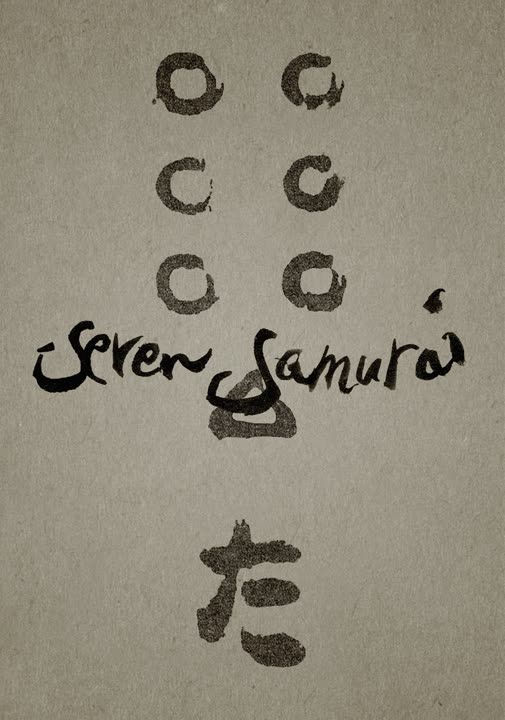 Seven Samurai
た